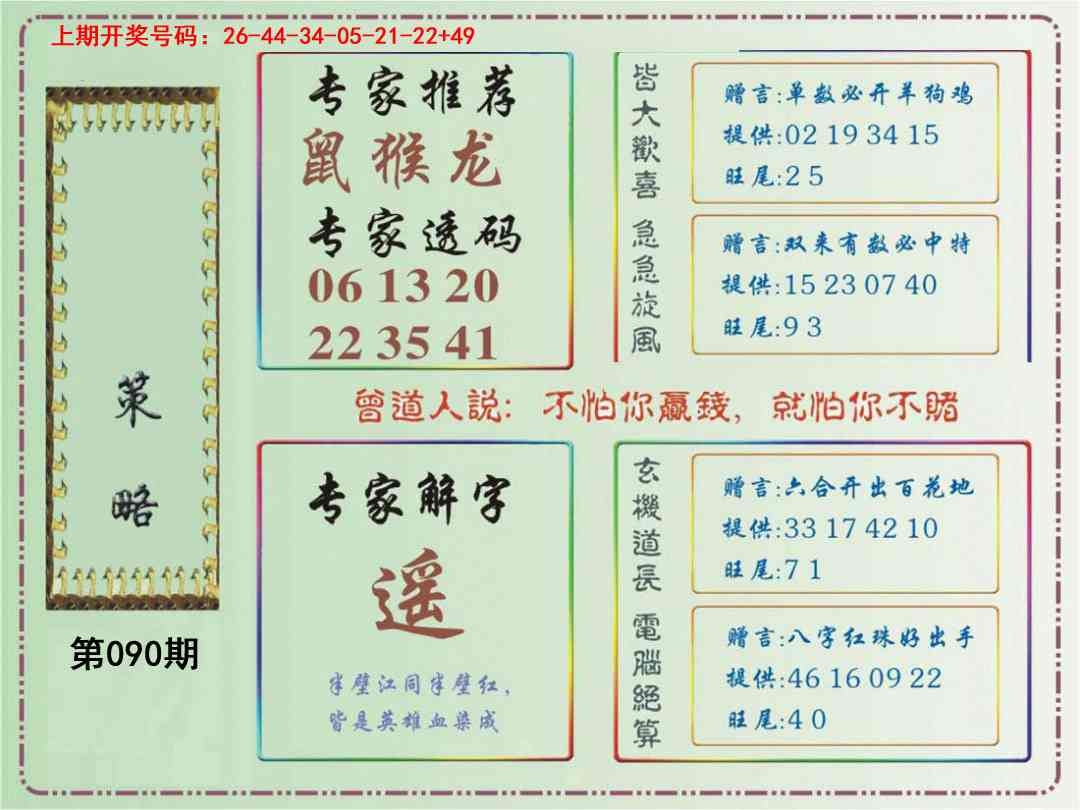 上期开奖号码：26-44-34-05-21-22+49
策略
第090期
专家推荐
鼠猴龙
专家透码
06 13 20
22 35 41
皆大歡喜
赠言:单数必开羊狗鸡
提供:02 19 34 15
旺尾:2 5
急急旋風
赠言:双来有数必中特
提供:15 23 07 40
旺尾:9 3
曾道人説：不怕你贏錢，就怕你不賭
专家解字
遥
半壁江同半壁红，
皆是英雄血染成
玄機道長
赠言:六合开出百花地
提供:33 17 42 10
旺尾:7 1
電腦絕算
赠言:八字红珠好出手
提供:46 16 09 22
旺尾:4 0